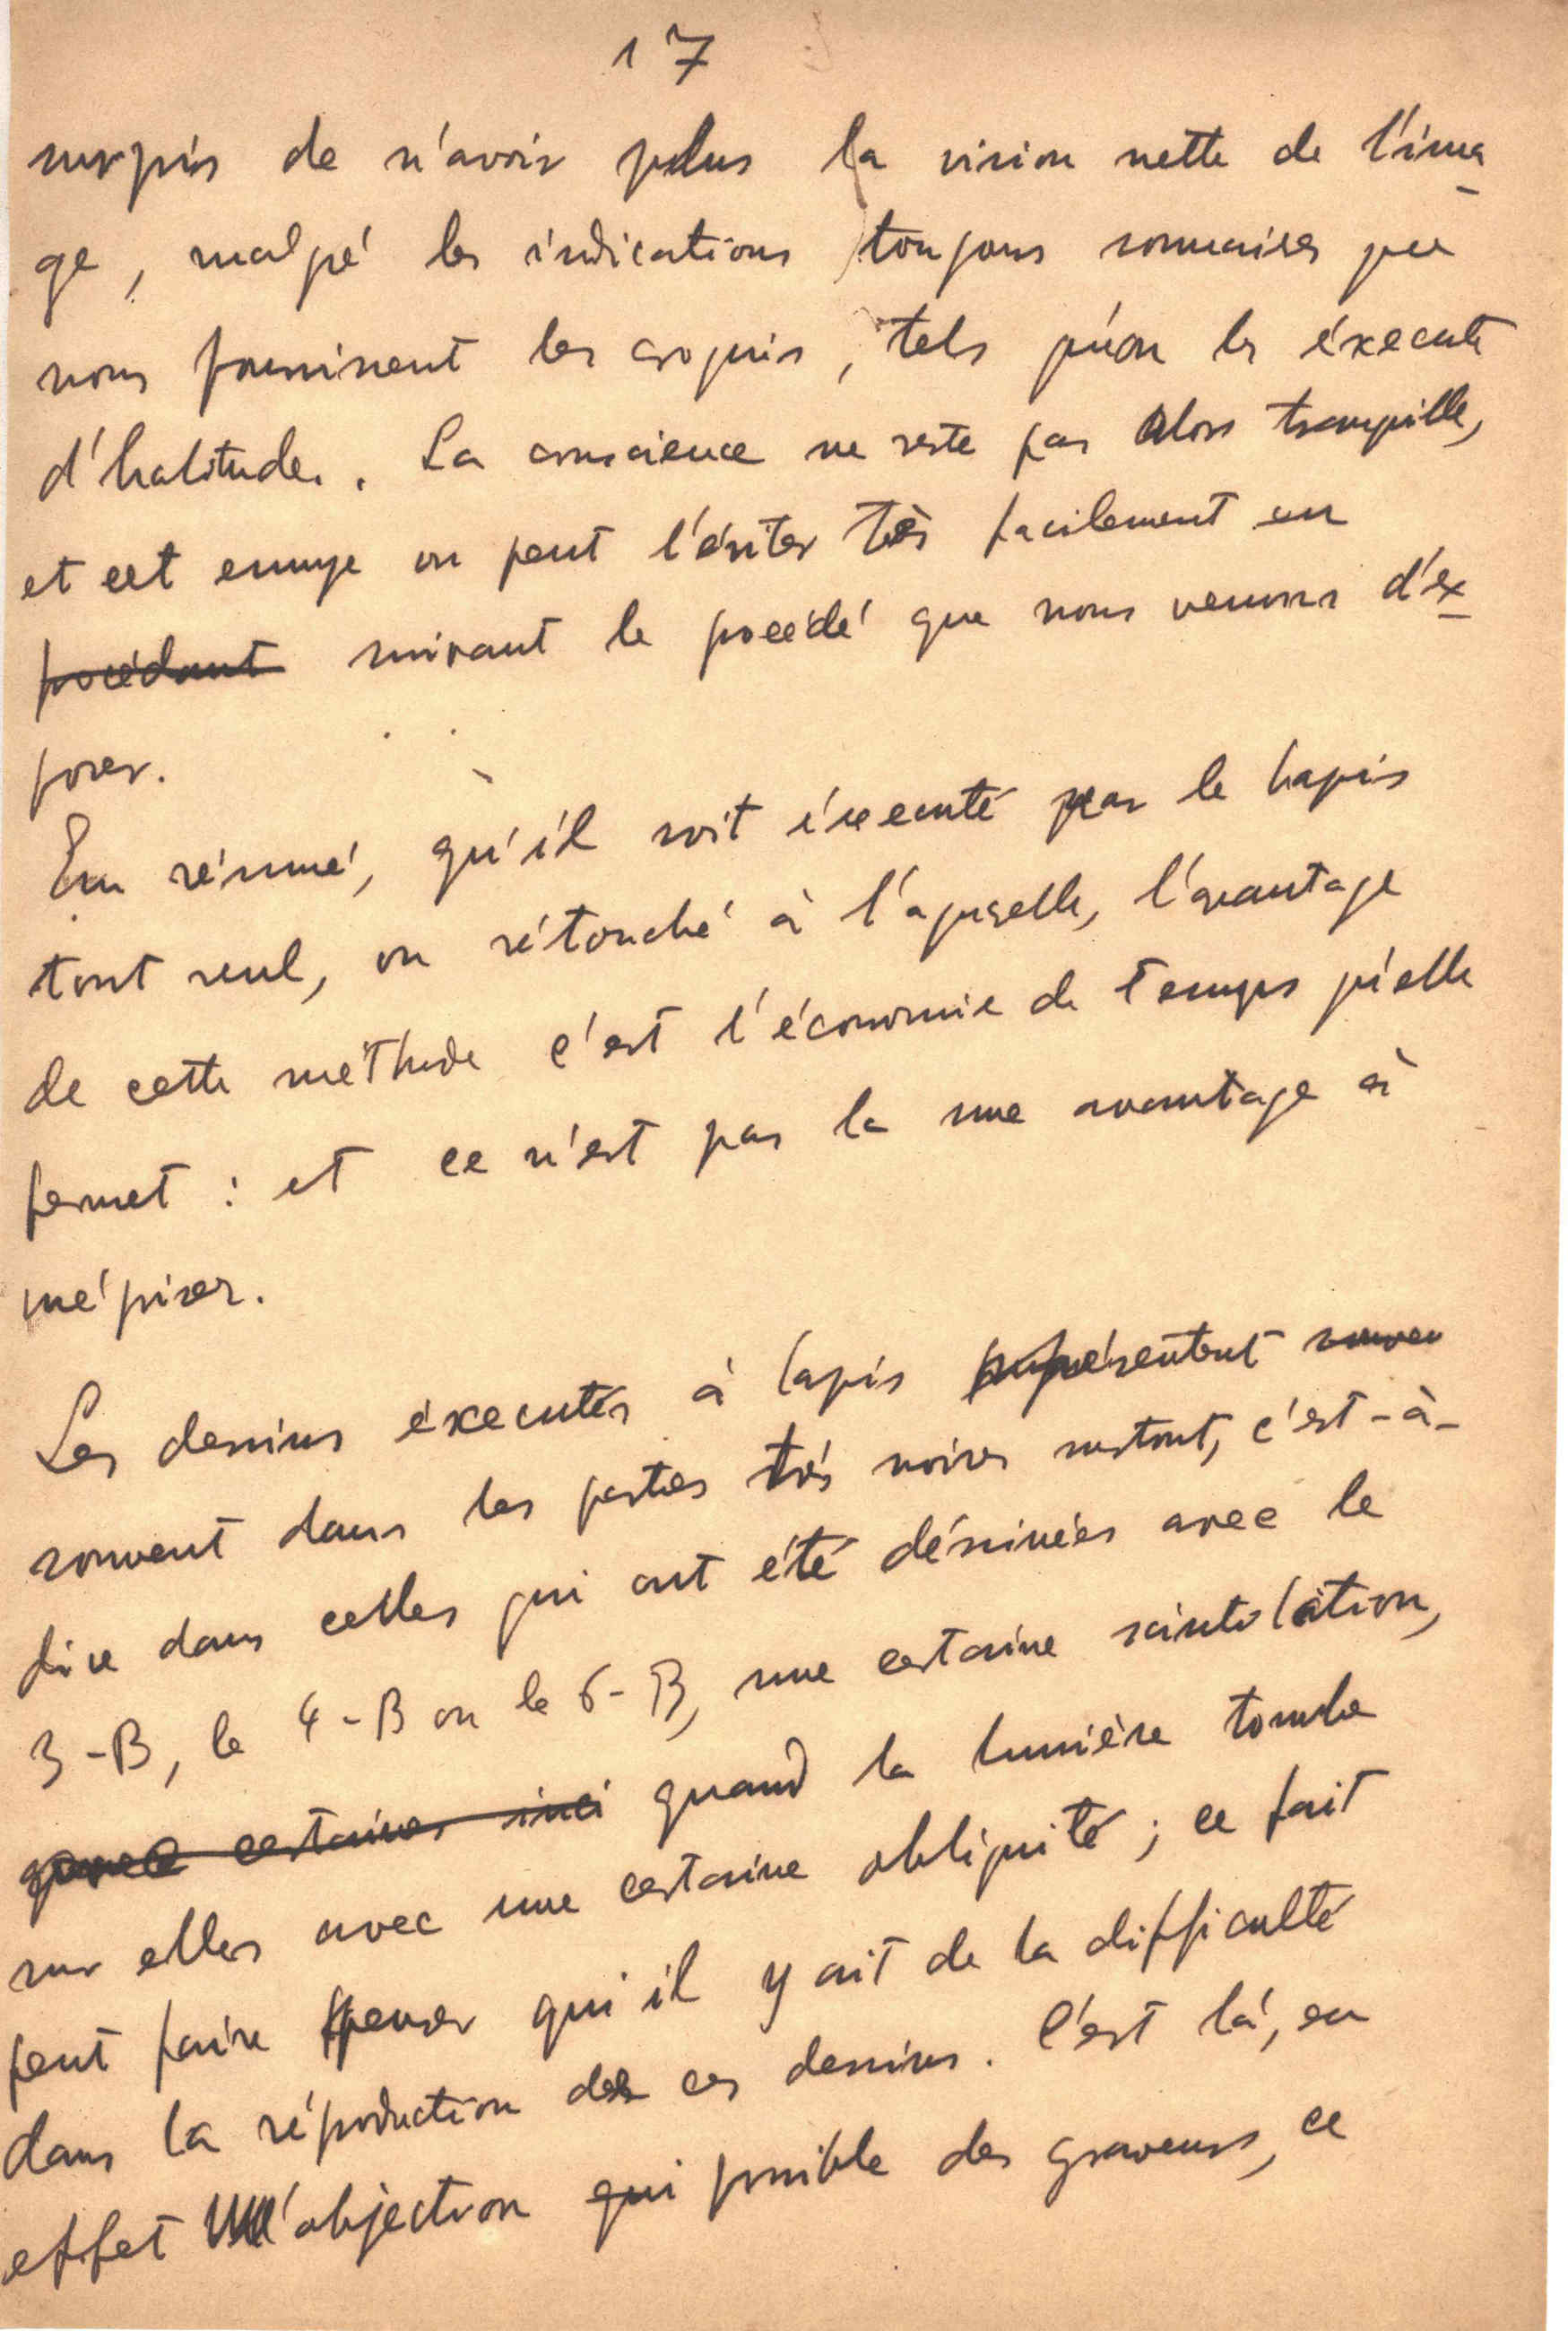 17
surpris de n'avoir plus la vision nette de l'ima-
ge, malgré les indications toujours sommaires que
nous fournissent les croquis, tels qu'on les éxecute
d'habitude. La conscience ne reste pas alors tranquille,
et cet ennuye on peut l'éviter très facilement en
procédant suivant le procédé que nous venons d'ex-
poser.
En résumé, qu'il soit éxecuté par le lapis
tout seul, ou rétouché à l'aquarelle, l'avantage
de cette méthode c'est l'économie de temps qu'elle
permet : et ce n'est pas la une avantage à
mépriser.
Les dessins éxecutés à lapis représentent souven
souvent dans les parties très noires surtout, c'est-à-
dire dans celles qui ont été déssinées avec le
3-B, le 4-B ou le 6-B, une certaine scintilation,
certaines inci quand la lumière tombe
sur elles avec une certaine obliquité ; ce fait
peut faire penser qui il y ait de la difficulté
dans la réproduction de ces dessins. C'est là, en
effet l'objection qui possible des graveurs, ce